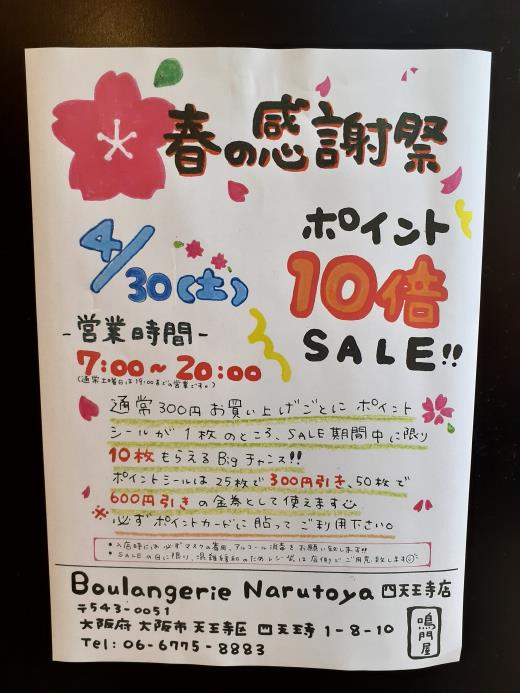 春の感謝祭
4/30(土)
ポイント
10倍
SALE!!
-営業時間-
7:00~20:00
(通常土曜日は19:00までの営業です。)
通常300円お買い上げごとにポイント
シールが1枚のところ、SALE期間中に限り
10枚もらえるBigチャンス!!
ポイントシールは25枚で300円引き、50枚で
600円引きの金券として使えます
※必ずポイントカードに貼ってご利用下さい。
•入店時には必ずマスクの着用、アルコール消毒をお願い致します!!
•SALEの日に限り、混雑緩和のためレジ袋は店側でご用意致します
Boulangerie Narutoya 四天王寺店
〒543-0051
大阪府大阪市天王寺区四天王寺1-8-10
Tel: 06-6775-8883
鳴門屋